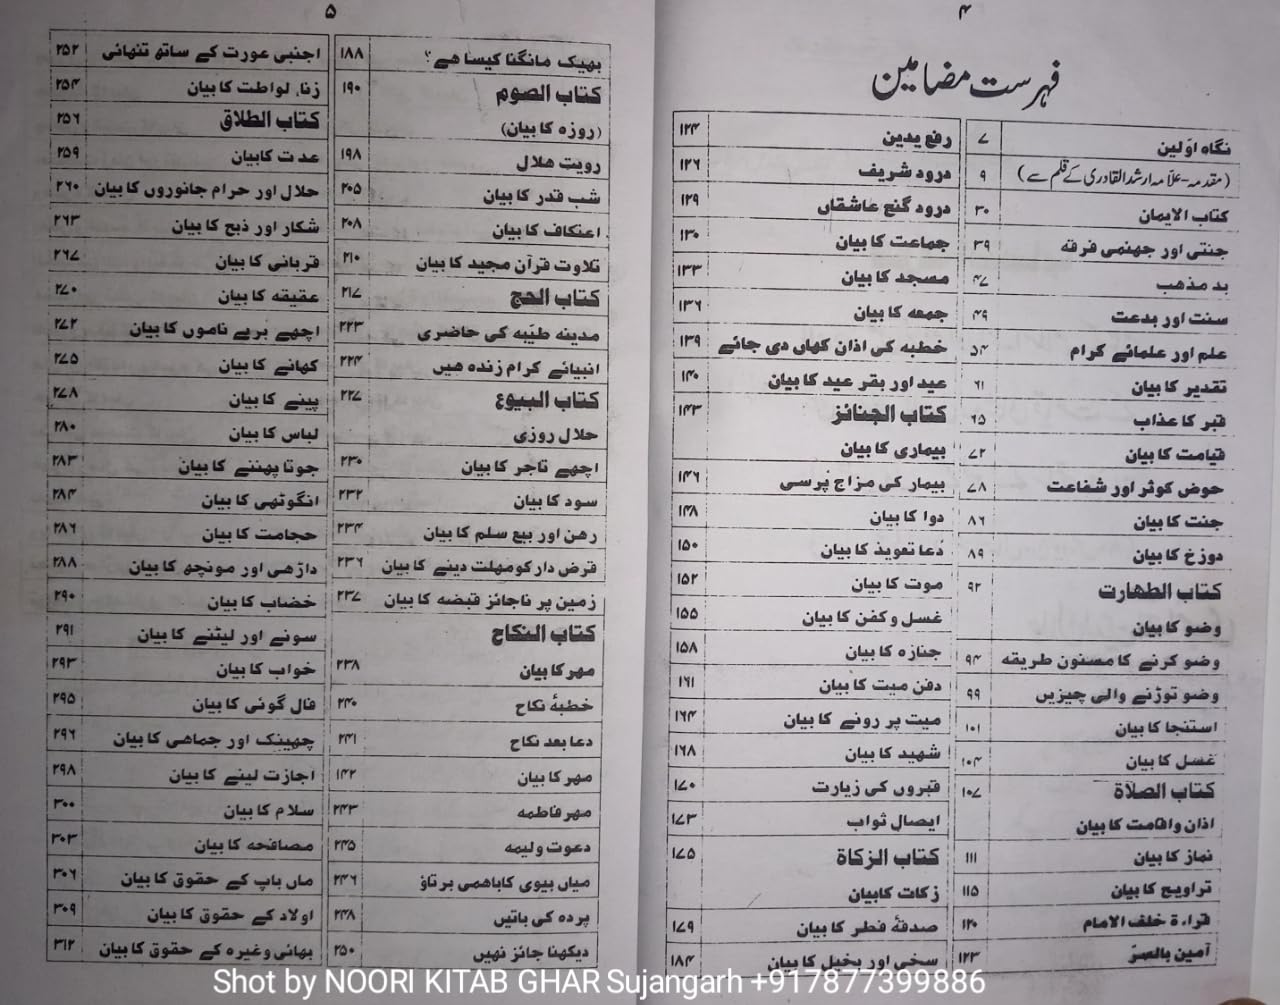 ۴
فہرست مضامین
نگاہ اوّلین ۷
(مقدمہ-علامہ ارشد القادری کے قلم سے) ۹
کتاب الایمان ۳۰
جنتی اور جہنمی فرقہ ۳۹
بد مذہب ۴۷
سنت اور بدعت ۴۹
علم اور علمائے کرام ۵۴
تقدیر کا بیان ۶۱
قبر کا عذاب ۶۵
قیامت کا بیان ۷۲
حوض کوثر اور شفاعت ۷۸
جنت کا بیان ۸۶
دوزخ کا بیان ۸۹
کتاب الطھارت ۹۲
وضو کا بیان
وضو کرنے کا مسنون طریقہ ۹۴
وضو توڑنے والی چیزیں ۹۹
استنجا کا بیان ۱۰۱
غسل کا بیان ۱۰۴
کتاب الصلاۃ ۱۰۷
اذان واقامت کا بیان
نماز کا بیان ۱۱۱
تراویح کا بیان ۱۱۵
قراءۃ خلف الامام ۱۲۰
آمین بالسرّ ۱۲۳
رفع یدین ۱۲۴
درود شریف ۱۲۶
درود گنج عاشقاں ۱۲۹
جماعت کا بیان ۱۳۰
مسجد کا بیان ۱۳۳
جمعہ کا بیان ۱۳۶
خطبہ کی اذان کہاں دی جائے ۱۳۹
عید اور بقر عید کا بیان ۱۴۰
کتاب الجنائز ۱۴۳
بیماری کا بیان
بیمار کی مزاج پُرسی ۱۴۶
دوا کا بیان ۱۴۸
دُعا تعویذ کا بیان ۱۵۰
موت کا بیان ۱۵۲
غسل و کفن کا بیان ۱۵۵
جنازہ کا بیان ۱۵۸
دفن میت کا بیان ۱۶۱
میت پر رونے کا بیان ۱۶۴
شھید کا بیان ۱۶۸
قبروں کی زیارت ۱۷۰
ایصالِ ثواب ۱۷۳
کتاب الزکاۃ ۱۷۵
زکات کابیان
صدقۂ فطر کا بیان ۱۷۹
سخی اور بخیل کا بیان ۱۸۴
۵
بھیک مانگنا کیسا ھے؟ ۱۸۸
کتاب الصوم ۱۹۰
(روزہ کا بیان)
رویت ھلال ۱۹۸
شب قدر کا بیان ۲۰۵
اعتکاف کا بیان ۲۰۸
تلاوت قرآن مجید کا بیان ۲۱۰
کتاب الحج ۲۱۷
مدینہ طیّبہ کی حاضری ۲۲۳
انبیائے کرام زندہ ھیں ۲۲۴
کتاب البیوع ۲۲۷
حلال روزی
اچھے تاجر کا بیان ۲۳۰
سود کا بیان ۲۳۲
رھن اور بیع سلم کا بیان ۲۳۴
قرض دار کو مہلت دینے کا بیان ۲۳۶
زمین پر ناجائز قبضہ کا بیان ۲۳۷
کتاب النکاح
مہر کا بیان ۲۳۸
خطبۂ نکاح ۲۴۰
دعا بعد نکاح ۲۴۱
مہر کا بیان ۱۴۲
مہر فاطمہ ۲۴۳
دعوت ولیمہ ۲۴۵
میاں بیوی کا باھمی برتاؤ ۲۴۶
پردہ کی باتیں ۲۴۸
دیکھنا جائز نھیں ۲۵۰
اجنبی عورت کے ساتھ تنھائی ۲۵۲
زنا، لواطت کا بیان ۲۵۴
کتاب الطلاق ۲۵۶
عدت کابیان ۲۵۹
حلال اور حرام جانوروں کا بیان ۲۶۰
شکار اور ذبح کا بیان ۲۶۳
قربانی کا بیان ۲۶۷
عقیقہ کا بیان ۲۷۰
اچھے برے ناموں کا بیان ۲۷۲
کھانے کا بیان ۲۷۵
پینے کا بیان ۲۷۸
لباس کا بیان ۲۸۰
جوتا پھننے کا بیان ۲۸۳
انگوٹھی کا بیان ۲۸۴
حجامت کا بیان ۲۸۶
داڑھی اور مونچھ کا بیان ۲۸۸
خضاب کا بیان ۲۹۰
سونے اور لیٹنے کا بیان ۲۹۱
خواب کا بیان ۲۹۳
فال گوئی کا بیان ۲۹۵
چھینک اور جماھی کا بیان ۲۹۶
اجازت لینے کا بیان ۲۹۸
سلام کا بیان ۳۰۰
مصافحہ کا بیان ۳۰۳
ماں باپ کے حقوق کا بیان ۳۰۶
اولاد کے حقوق کا بیان ۳۰۹
بھائی وغیرہ کے حقوق کا بیان ۳۱۲
Shot by NOORI KITAB GHAR Sujangarh +917877399886